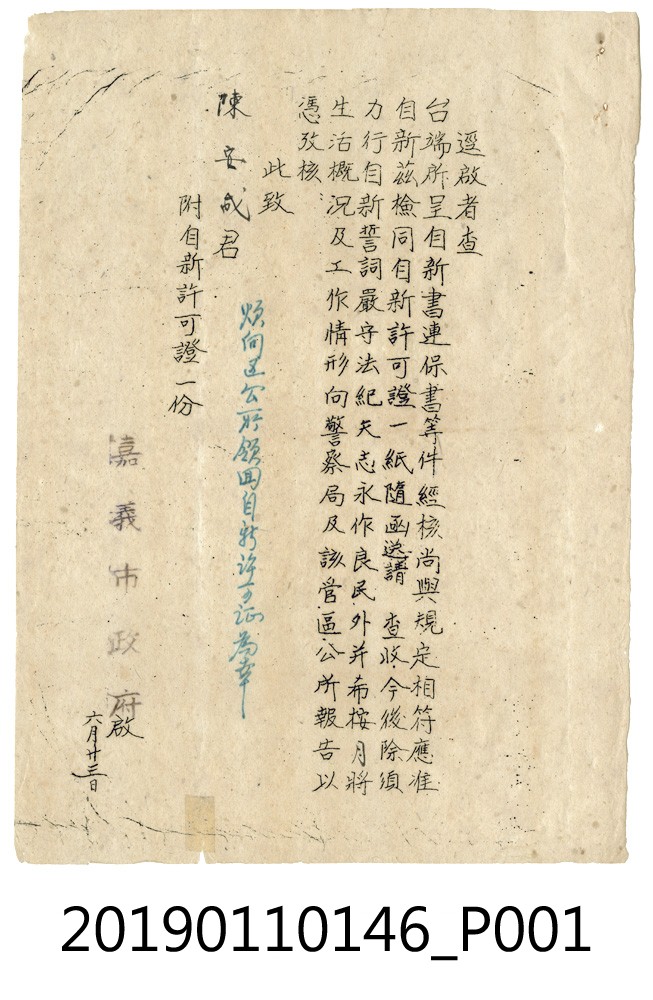 逕啟者查
台端所呈自新書連保書等件經核尚與規定相符應准
自新茲檢同自新許可證一紙隨函送請查收今後除須
力行自新誓詞嚴守法紀矢志永作良民外并希按月將
生活概況及工作情形向警察局及該管區公所報告以
憑攷核
此致
陳安成君
煩向區公所領回自新許可证為幸
附自新許可證一份
嘉義市政府啟
六月廿三日
20190110146_P001